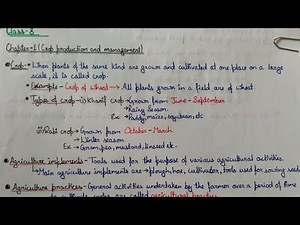 Class-8
Chapter-1 (Crop production and management)
Crop:- When plants of the same kind are grown and cultivated at one place on a large
scale, it is called crop.
Example - Crop of wheat → All plants grown in a field are of wheat.
Types of crop - (i) Kharif crop → Grown from June - September
→ Rainy Season
Ex → Paddy, maize, soyabean, etc
(ii) Rabi crop → Grown from October - March
→ Winter season
Ex → Gram, pea, mustard, linseed etc.
Agriculture implements - Tools used for the purpose of various agricultural activities.
Main agriculture implements are → plough, hoe, cultivator, tools used for sowing seeds
Agriculture practices - General activities undertaken by the farmer over a period of time
to cultivate crops are called agricultural practices